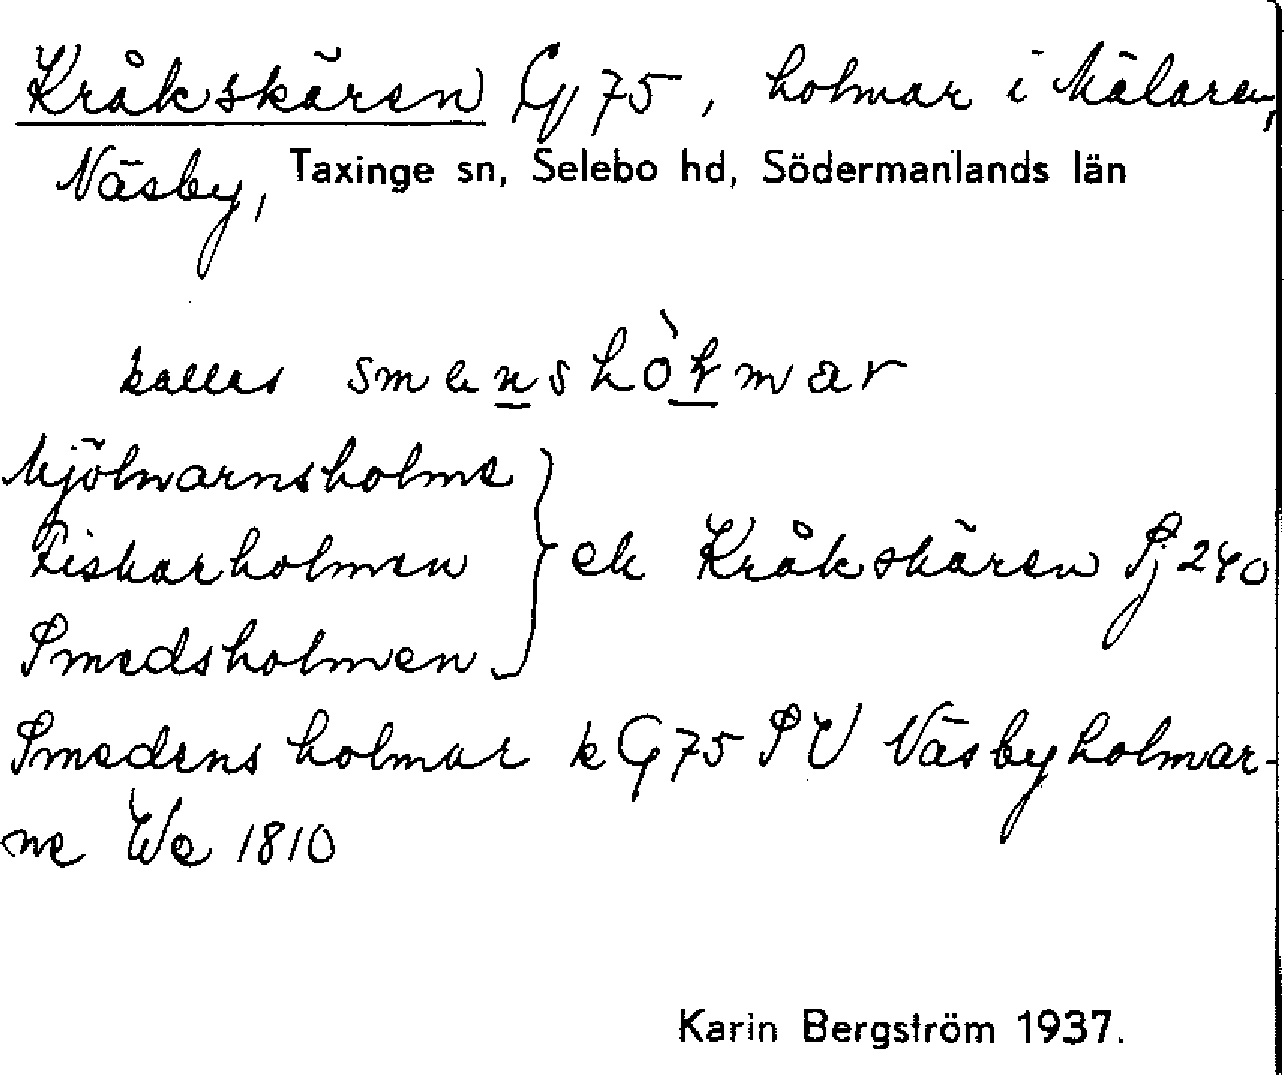 Kråkskären G 75, holmar i Mälaren,
Näsby, Taxinge sn, Selebo hd, Södermanlands län
kallas smenshòłmar
Mjölnarnsholme
Fiskarholmen } ek Kråkskären Pj 240
Smedsholmen
Smedens holmar k G 75 SV Näsbyholmar-
ne We 1810
Karin Bergström 1937.